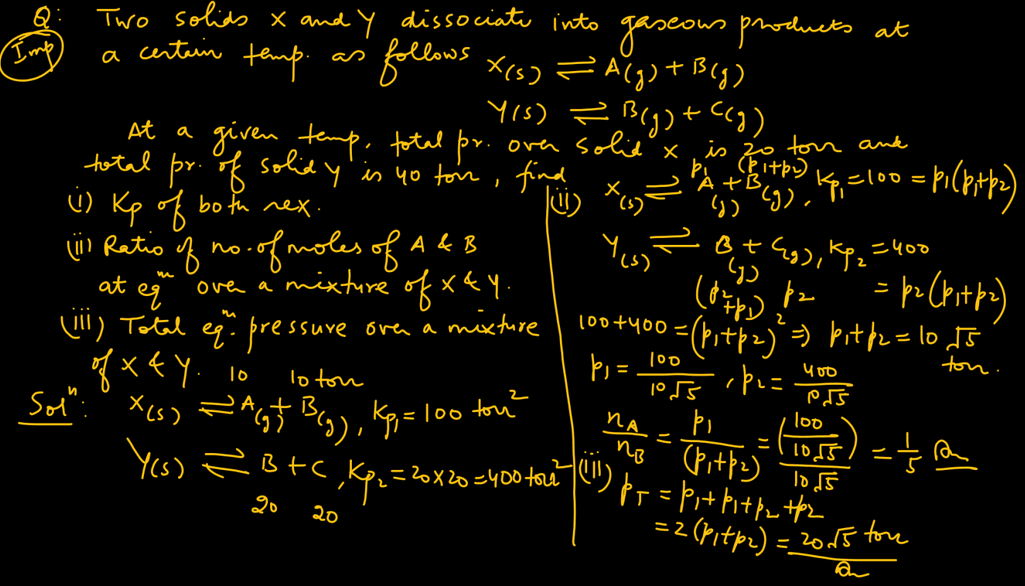 Q: Two solids X and Y dissociate into gaseous products at
Imp
a certain temp. as follows X(s) ⇌ A(g) + B(g)
Y(s) ⇌ B(g) + C(g)
At a given temp, total pr. over solid X is 20 torr and
total pr. of solid Y is 40 torr, find
(i) Kp of both rex.
(ii) Ratio of no. of moles of A & B
at eqᵐ over a mixture of X & Y.
(iii) Total eqᵐ. pressure over a mixture
of X & Y.
Solⁿ:
10 10 torr
X(s) ⇌ A(g) + B(g), Kp₁ = 100 torr²
Y(s) ⇌ B + C, Kp₂ = 20×20 = 400 torr²
20 20
p₁ (p₁+p₂)
(ii) X(s) ⇌ A(g) + B(g), Kp₁ = 100 = p₁(p₁+p₂)
Y(s) ⇌ B(g) + C(g), Kp₂ = 400
(p₂+p₁) p₂ = p₂(p₁+p₂)
100+400 = (p₁+p₂)² ⇒ p₁+p₂ = 10√5 torr.
p₁ = 100/10√5, p₂ = 400/10√5
nA/nB = p₁/(p₁+p₂) = (100/10√5)/10√5 = 1/5 Ans
(iii) pT = p₁+p₁+p₂+p₂
= 2(p₁+p₂) = 20√5 torr
Ans